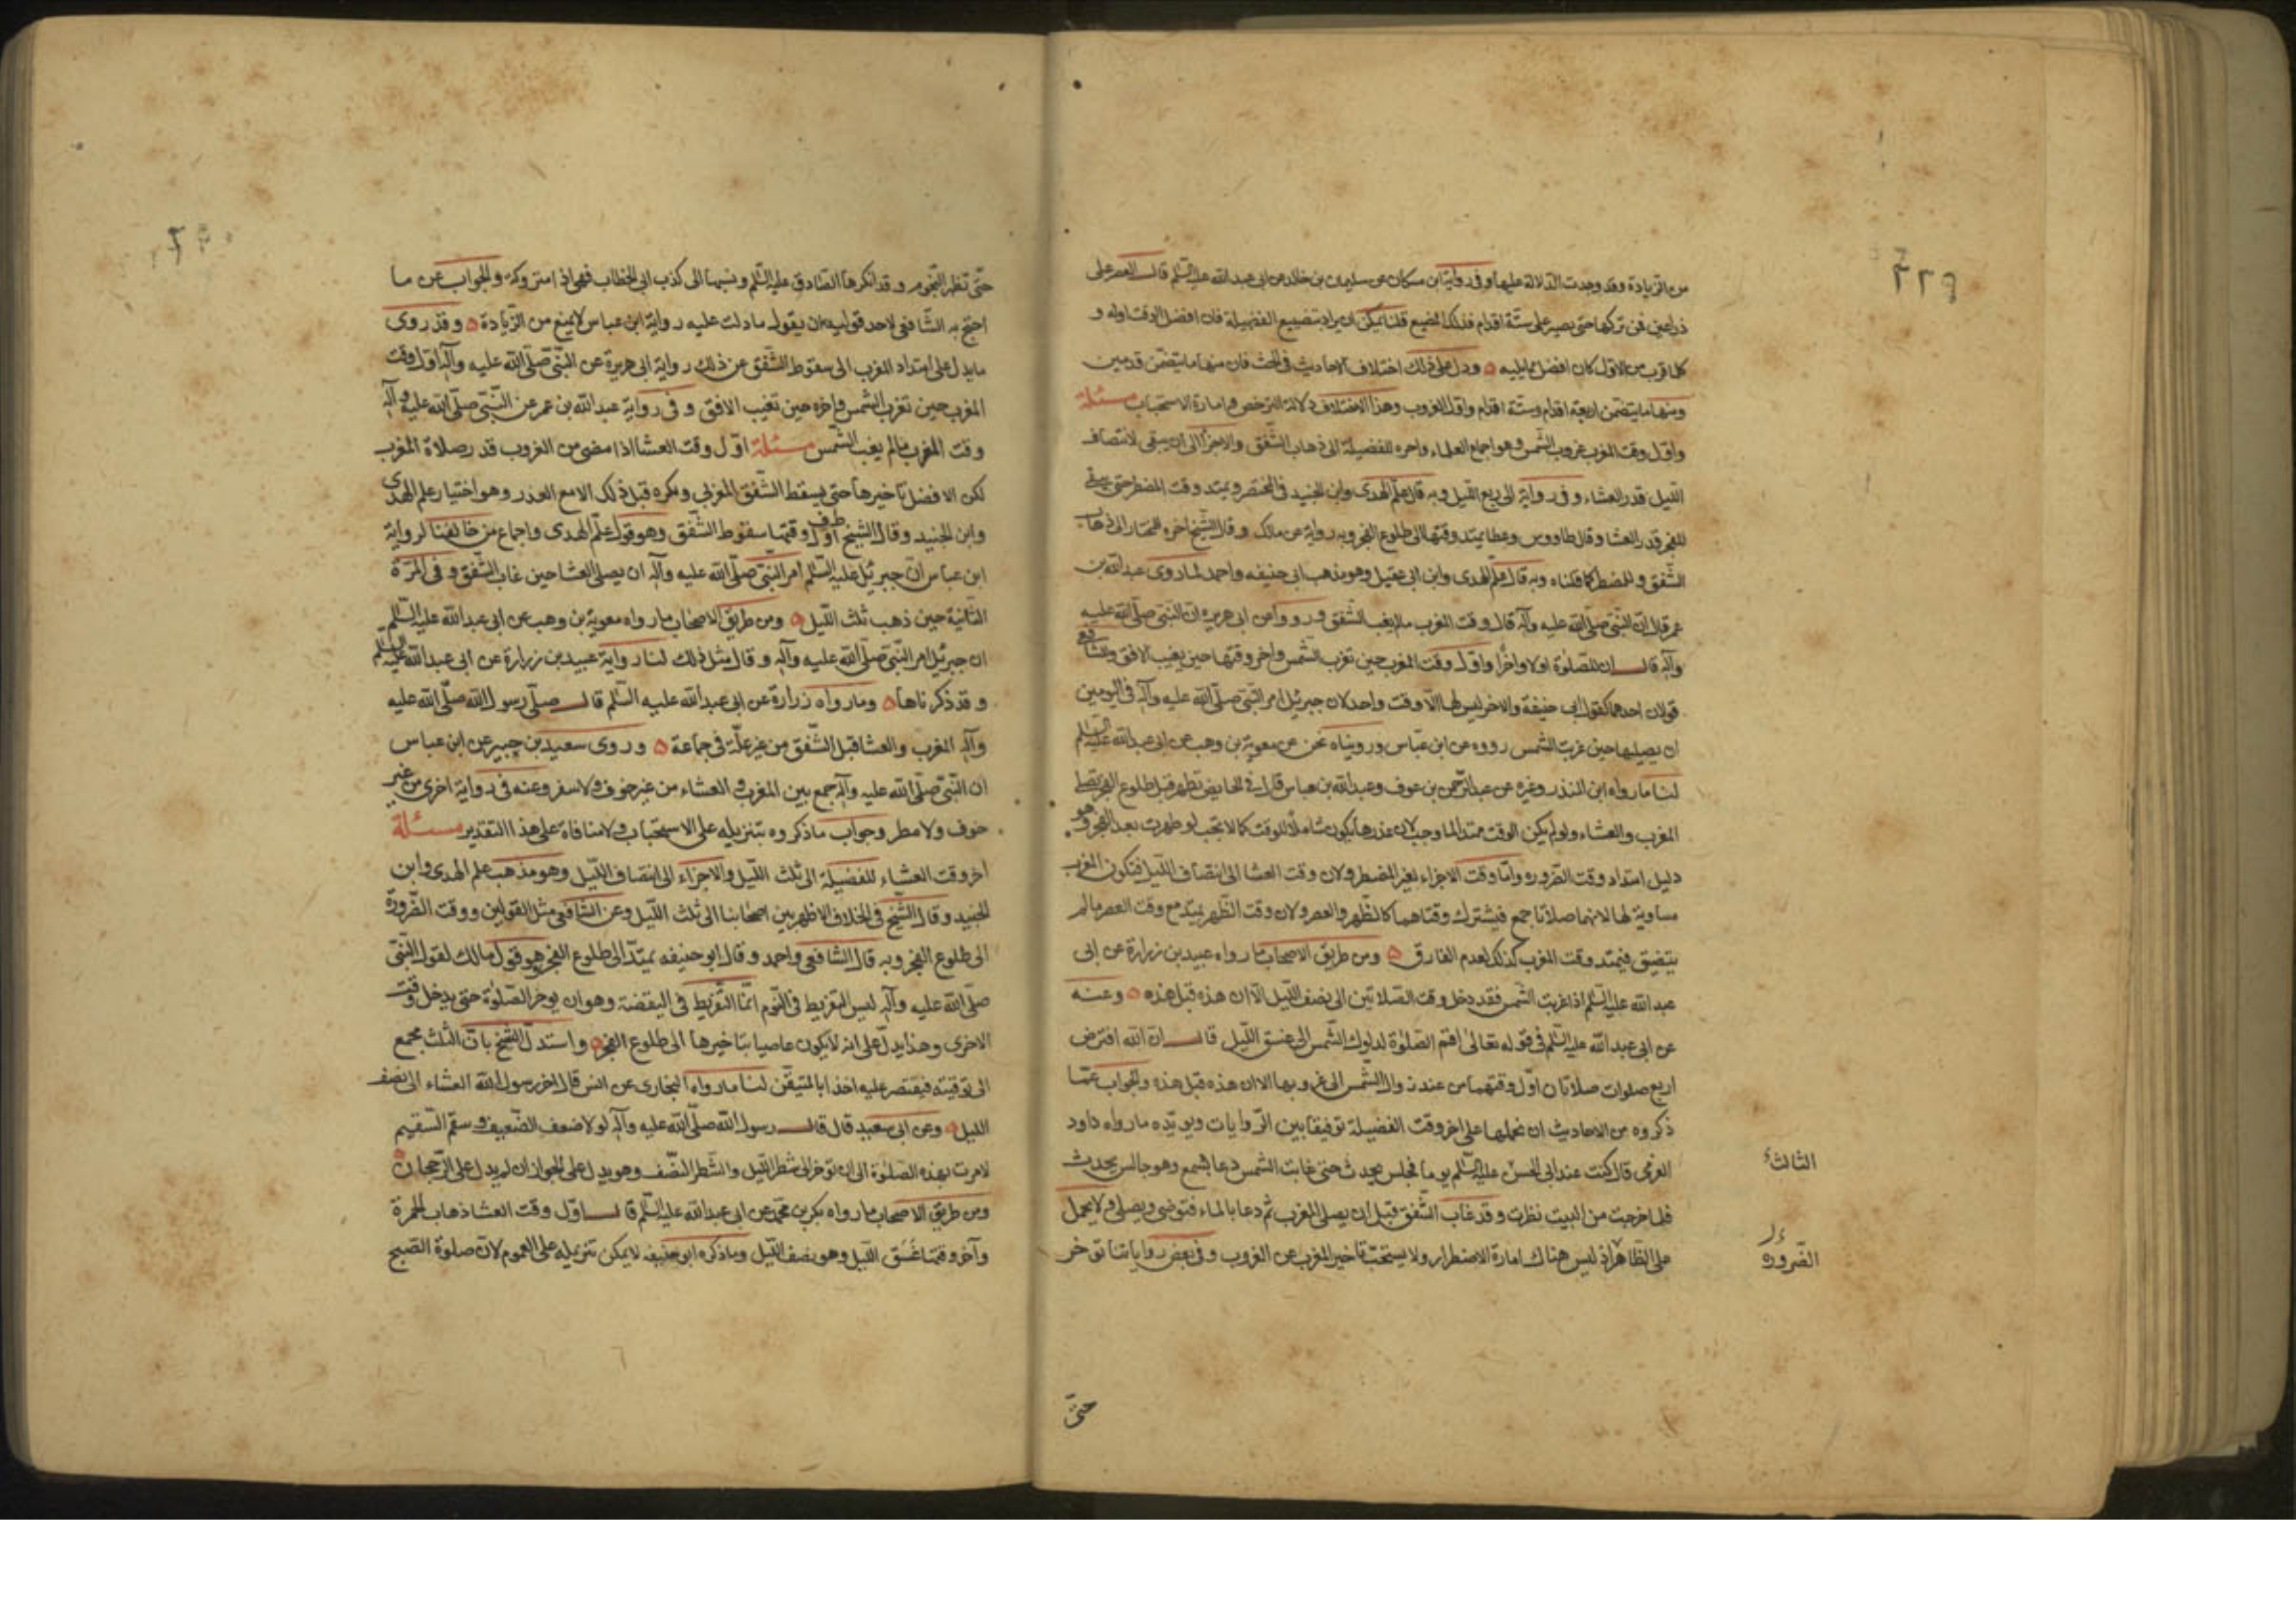 ٣٢٩
من الزيادة وقد وجدت الدلالة عليها وفي رواية ابن مسكان عن سليمان بن خالد عن ابى عبد الله عليه السلم قال العصر على
ذراعين فمن تركها حتى يصير على ستة اقدام فذلك المضيع قلنا يمكن ان يراد بتضييع الفضيلة فان افضل الوقت اوله و
كلما قرب من الاول كان افضل مما يليه ودل على ذلك اختلاف الاحاديث في الحث فان منها ما يتضمن قدمين
ومنها ما يتضمن اربعة اقدام وستة اقدام واول الغروب وهذا الاختلاف دلالة الترخص وامارة الاستحباب مسئلة
واول وقت المغرب غروب الشمس وهو اجماع العلماء واخره للفضيلة الى ذهاب الشفق والاجزأ الى ان يبقى لانتصاف
الليل قدر العشاء وفي رواية الى ربع الليل وبه قال علم الهدى وابن الجنيد في المختصر ويمتد وقت المضطر حتى يبقى
للفجر قدر العشا وقال طاووس وعطا يمتد وقتها الى طلوع الفجر وبه رواية عن مالك وقال الشيخ اخره للمختار الى ذهاب
الشفق وللمضطر كما قلناه وبه قال علم الهدى وابن ابى عقيل وهو مذهب ابى حنيفه واحمد لما روى عبد الله بن
عمر قال ان النبى صلى الله عليه وآله قال وقت المغرب ما لم يغب الشفق ورووا عن ابى هريره ان النبى صلى الله عليه
وآله قال ان للصلوة اولا واخرا واول وقت المغرب حين تغرب الشمس واخر وقتها حين يغيب الافق وللشافعي
قولان احدهما كقول ابى حنيفة والاخر ليس لها الا وقت واحد لان جبرئيل امر النبى صلى الله عليه وآله في اليومين
ان يصليها حين غربت الشمس رووه عن ابن عباس ورويناه نحن عن معوية بن وهب عن ابى عبد الله عليه السلم
لنا ما رواه ابن المنذر وغيره عن عبد الرحمن بن عوف وعبد الله بن عباس قالا في الحايض تطهر قبل طلوع الفجر تصلى
المغرب والعشاء ولو لم يكن الوقت ممتدا لما وجب لان عذرها يكون شاملا للوقت كما لا تجب لو طهرت بعد الفجر وهو
دليل امتداد وقت الضروره واما وقت الاجزاء لغير المضطر ولان وقت العشا الى انتصاف الليل فتكون المغرب
مساوية لها لانهما صلاتا جمع فيشترك وقتاهما كالظهر والعصر ولان وقت الظهر يمتد مع وقت العصر ما لم
يتضيق فيمتد وقت المغرب كذلك لعدم الفارق ومن طريق الاصحاب ما رواه عبيد بن زرارة عن ابى
عبد الله عليه السلم اذا غربت الشمس فقد دخل وقت الصلاتين الى نصف الليل الا ان هذه قبل هذه وعنه
عن ابى عبد الله عليه السلم في قوله تعالى اقم الصلوة لدلوك الشمس الى غسق الليل قال ان الله افترض
اربع صلوات صلاتان اول وقتهما من عند زوال الشمس الى غروبها الا ان هذه قبل هذه والجواب عما
ذكروه من الاحاديث ان نحملها على اخر وقت الفضيلة توفيقا بين الروايات ويويده ما رواه داود
الصرمى قال كنت عند ابى الحسن عليه السلم يوما فجلس يحدث حتى غابت الشمس دعا بشمع وهو جالس يحدث
الثالث
فلما خرجت من البيت نظرت وقد غاب الشفق قبل ان يصلى المغرب ثم دعا بالماء فتوضى ويصلى ولا يحمل
على الظاهر اذ ليس هناك امارة الاضطرار ولا يستحب تاخير المغرب عن الغروب وفي بعض رواياتنا توخر
الضروره
حتى
حتى تظهر النجوم وقد انكرها الصادق عليه السلم ونسبها الى كذب ابى الخطاب فهى اذا متروكة والجواب عن ما
احتج به الشافعى لاحد قوليه ان يقول ما دلت عليه رواية ابن عباس لا يمنع من الزيادة وقد روى
ما يدل على امتداد المغرب الى سقوط الشفق عن ذلك رواية ابى هريرة عن النبى صلى الله عليه وآله اول وقت
المغرب حين تغرب الشمس واخره حين تغيب الافق وفي رواية عبد الله بن عمر عن النبى صلى الله عليه وآله
وقت المغرب ما لم يغب الشمس مسئلة اول وقت العشا اذا مضى من الغروب قدر صلاة المغرب
لكن الافضل تاخيرها حتى يسقط الشفق المغربى ويكره قبل ذلك الا مع العذر وهو اختيار علم الهدى
وابن الجنيد وقال الشيخ طرف اول وقتها سقوط الشفق وهو قول علم الهدى واجماع من خالفنا لرواية
ابن عباس ان جبرئيل عليه السلم امر النبى صلى الله عليه وآله ان يصلى العشا حين غاب الشفق وفي المرة
الثانية حين ذهب ثلث الليل ومن طريق الاصحاب ما رواه معوية بن وهب عن ابى عبد الله عليه السلم
ان جبرئيل امر النبى صلى الله عليه وآله وقال مثل ذلك لنا رواية عبيد بن زرارة عن ابى عبد الله عليه السلم
وقد ذكرناها وما رواه زرارة عن ابى عبد الله عليه السلم قال صلى رسول الله صلى الله عليه
وآله المغرب والعشا قبل الشفق من غير علة في جماعة وروى سعيد بن جبير عن ابن عباس
ان النبى صلى الله عليه وآله جمع بين المغرب والعشاء من غير خوف ولا سفر وعنه في رواية اخرى من غير
خوف ولا مطر وجواب ما ذكروه بتنزيله على الاستحباب ولا منافاة على هذا التقدير مسئلة
اخر وقت العشاء للفضيلة الى ثلث الليل والاجزاء الى انتصاف الليل وهو مذهب علم الهدى وابن
الجنيد وقال الشيخ في الخلاف الاظهر بين اصحابنا الى ثلث الليل وعن الشافعى مثل القولين ووقت الضرورة
الى طلوع الفجر وبه قال الشافعى واحمد وقال ابو حنيفه يمتد الى طلوع الفجر وهو قول مالك لقول النبى
صلى الله عليه وآله ليس التفريط في النوم انما التفريط في اليقضة وهو ان يوخر الصلوة حتى يدخل وقت
الاخرى وهذا يدل على انه لا يكون عاصيا بتاخيرها الى طلوع الفجر واستدل الشيخ بان الثلث مجمع
الى توقيته فيقتصر عليه اخذا بالمتيقن لنا ما رواه البخارى عن انس قال اخر رسول الله العشاء الى نصف
الليل وعن ابى سعيد قال قال رسول الله صلى الله عليه وآله لولا ضعف الضعيف وسقم السقيم
لامرت بهذه الصلوة الى ان توخر الى شطر الليل والشطر النصف وهو يدل على الجواز ان لم يدل على الرجحان
ومن طريق الاصحاب ما رواه بكر بن محمد عن ابى عبد الله عليه السلم قال اول وقت العشا ذهاب الحمرة
وآخر وقتها غسق الليل وهو نصف الليل وما ذكره ابو حنيفه لا يمكن تنزيله على العموم لان صلوة الصبح